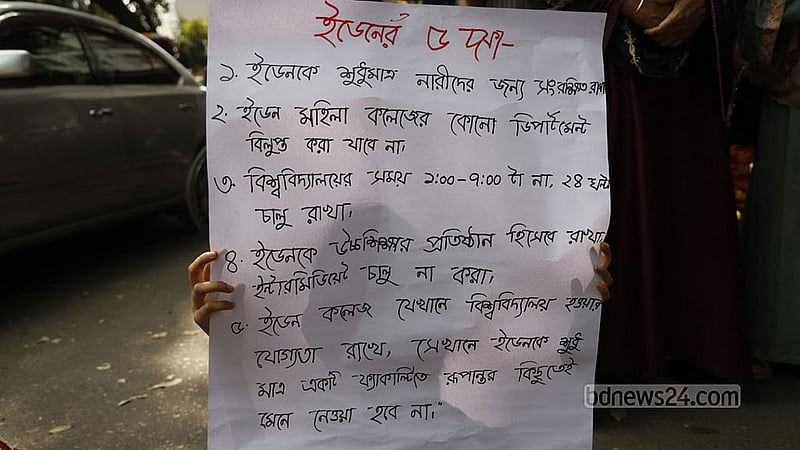 ইডেনের ৫ দফা-
১. ইডেনকে শুধুমাত্র নারীদের জন্য সংরক্ষিত রাখা
২. ইডেন মহিলা কলেজের কোনো ডিপার্টমেন্ট
বিলুপ্ত করা যাবে না।
৩. বিশ্ববিদ্যালয়ের সময় ১:০০-৭:০০ টা না, ২৪ ঘন্টা
চালু রাখা।
৪. ইডেনকে উচ্চশিক্ষার প্রতিষ্ঠান হিসেবে রাখা,
ইন্টারমিডিয়েট চালু না করা।
৫. ইডেন কলেজ যেখানে বিশ্ববিদ্যালয় হওয়ার
যোগ্যতা রাখে, সেখানে ইডেনকে শুধু
মাত্র একটি ফ্যাকাল্টিতে রূপান্তর কিছুতেই
মেনে নেওয়া হবে না।"
bdnews24.com